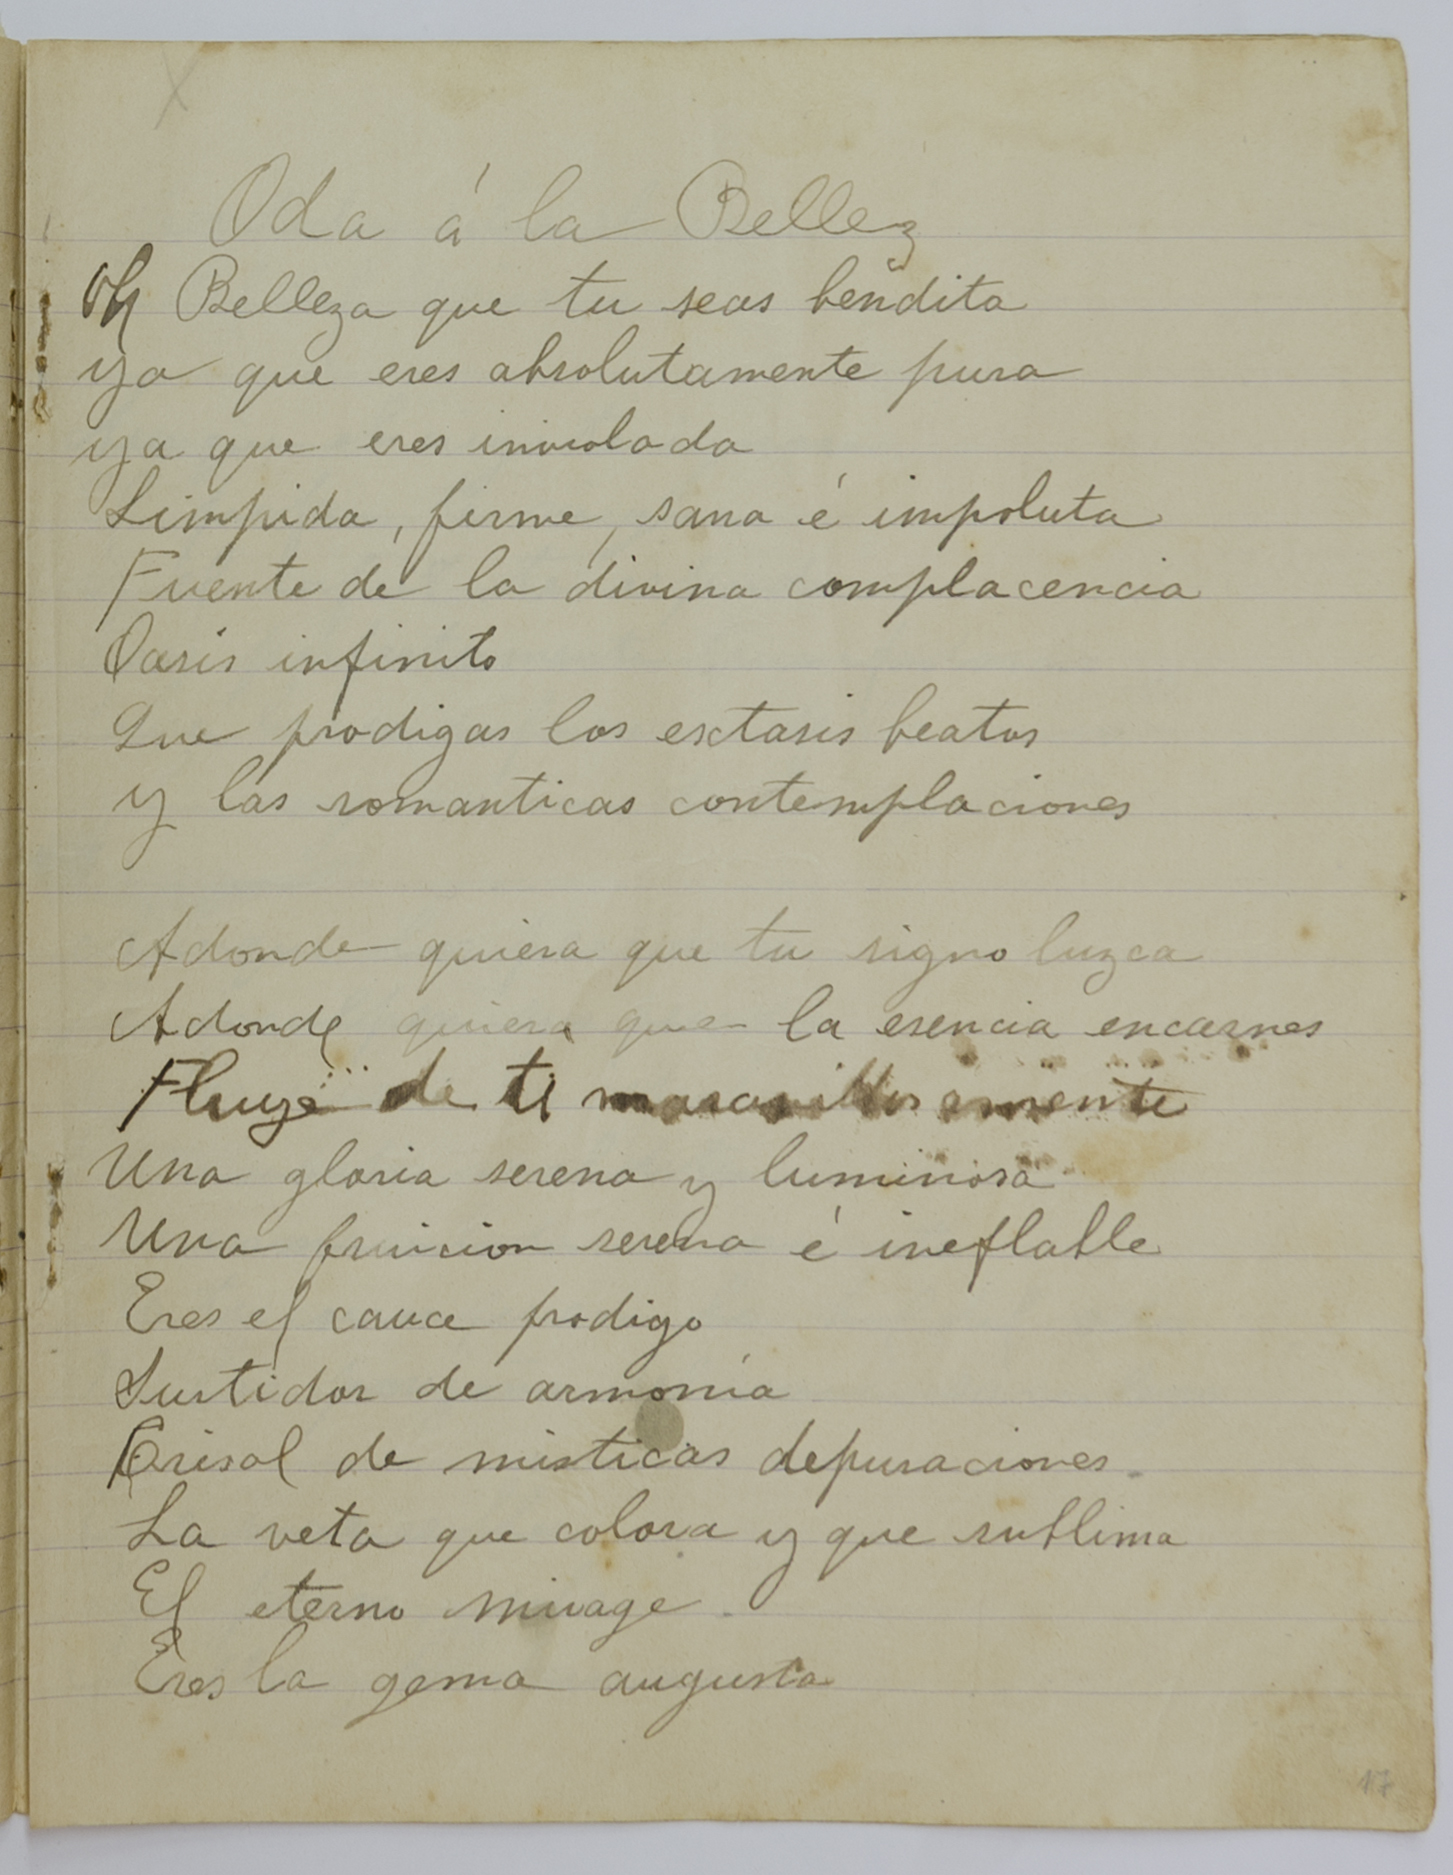 Oda á la Bellez
a
Oh Belleza que tu seas bendita
ya que eres absolutamente pura
ya que eres inviolada
Limpida, firme, sana é impoluta
Fuente de la divina complacencia
Oasis infinito
Que prodigas los esctasis beatos
y las romanticas contemplaciones
Adonde quiera que tu signo luzca
Adonde quiera que la esencia encarnes
Fluye de ti maravillosamente
Una gloria serena y luminosa
Una fruicion serena é ineflable
Eres el cauce prodigo
Surtidor de armonía
Crisol de misticas depuraciones.
La veta que colora y que sublima
El eterno mirage.
Eres la gema augusta
17